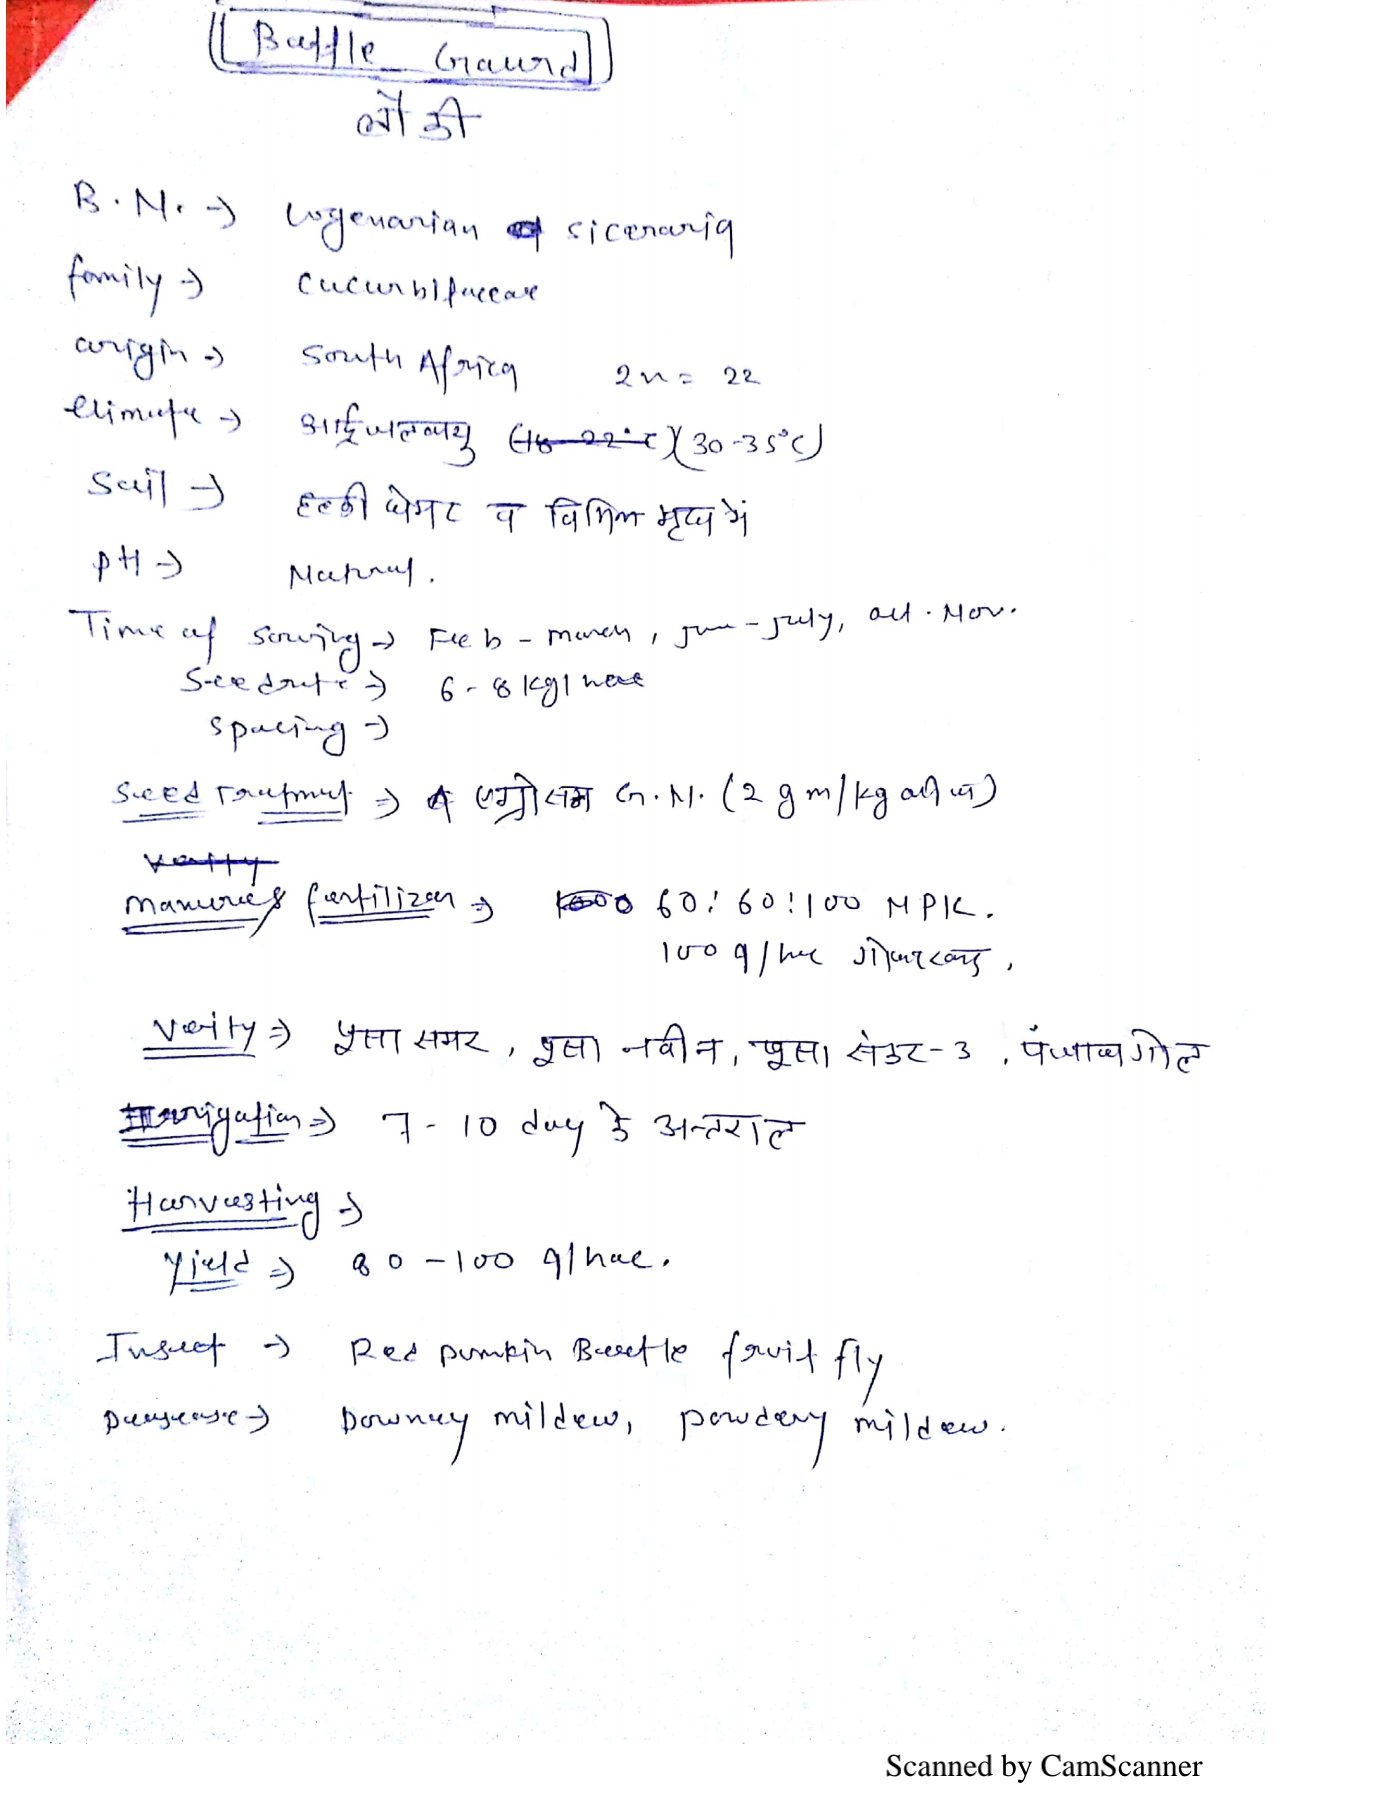 Bottle Gaurd
लौकी
B.N. → Lagenarian siceraria
family → Cucurbitaceae
origin → South Africa 2n = 22
climate → आर्द्र जलवायु (18-22°C) (30-35°C)
Soil → हल्की दोमट व विभिन्न मृदा में
pH → Natural.
Time of sowing → Feb - march, jun - july, oct. Nov.
Seedrate → 6-8 kg/hac
spacing →
Seed Treatment → एग्रोसन G.N. (2 gm/kg बीज)
Verity
manuries fertilizer → 60:60:100 NPK.
100 q/hac गोबर खाद,
Verity → पूसा समर, पूसा नवीन, पूसा सेडर-3, पंजाब गोल
Irrigation → 7-10 day के अन्तराल
Harvesting →
Yield → 80-100 q/hac.
Insect → Red pumkin Beetle fruit fly
Deasease → Downey mildew, powdery mildew.
Scanned by CamScanner